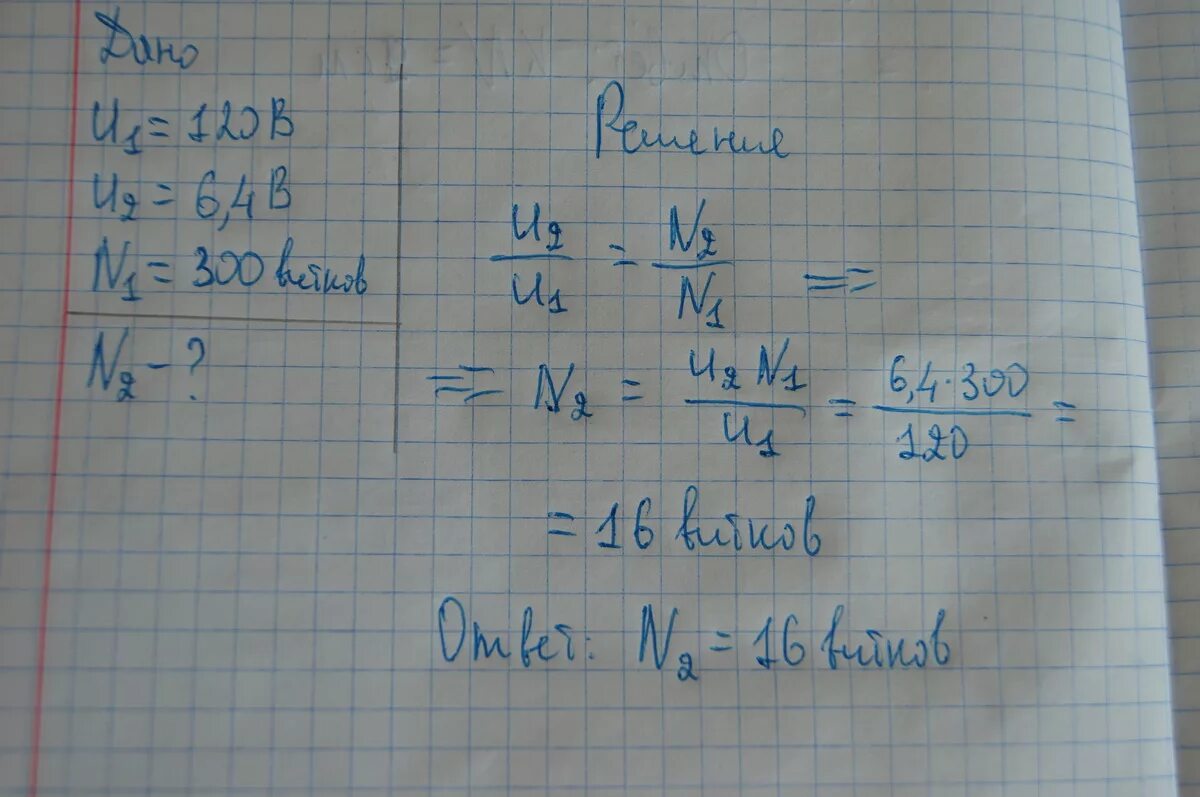 Дано
U₁ = 120 В
U₂ = 6,4 В
N₁ = 300 витков
N₂ - ?
Решение
U₂/U₁ = N₂/N₁ =>
=> N₂ = U₂ N₁/U₁ = 6,4·300/120 =
= 16 витков
Ответ: N₂ = 16 витков